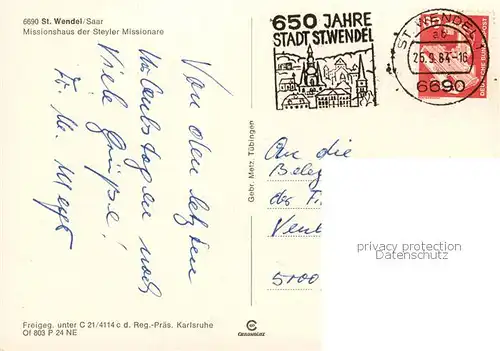 6690 St. Wendel/Saar
Missionshaus der Steyler Missionare
650 JAHRE
STADT ST.WENDEL
ST. WENDEL 1
ab
25.9.84-16
6690
DEUTSCHE BUNDESPOST
Von den letzten
Urlaubstagen noch
viele Grüße!
Gebr. Metz, Tübingen
An die
Beleg
der Fi
5100
privacy protection
Datenschutz
Freigeg. unter C 21/4114 c d. Reg.-Präs. Karlsruhe
Of 803 P 24 NE